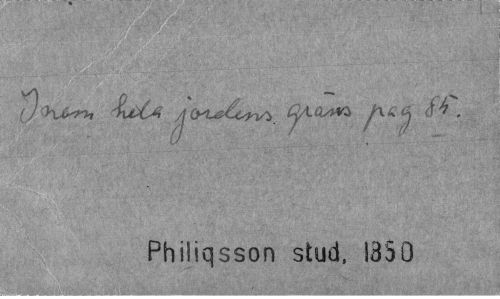 Inom hela jordens gräns pag 85.
Philiqsson stud, 1850